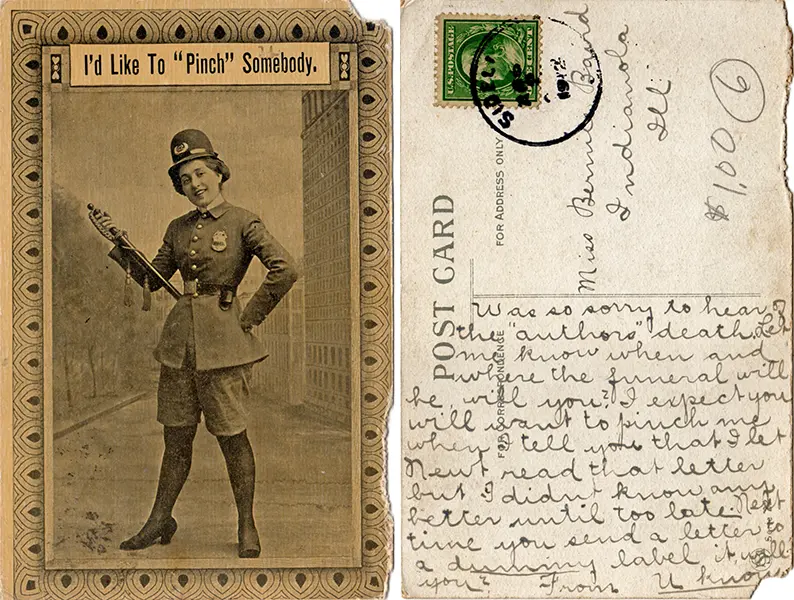 I'd Like To "Pinch" Somebody.
U.S. POSTAGE
CENT
1912
POST CARD
FOR ADDRESS ONLY
FOR CORRESPONDENCE
Miss Baird
Indianola
Ill
$1.00 6
Was so sorry to hear of
the "authors" death. Let
me know when and
where the funeral will
be will you? I expect you
will want to pinch me
when I tell you that I let
Newt read that letter
but I didnt know any
better until too late. Next
time you send a letter to
a dummy label it, will
you? From U know